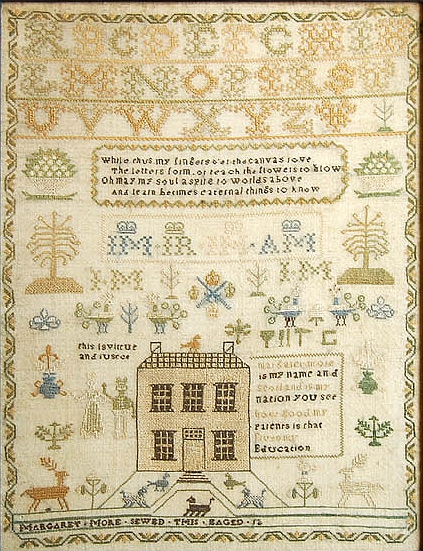 A B C D E F G H I K
L M N O P I R S T
U V W X Y
While thus my fingers o'er the canvas rove
The letters form, or teach the flowers to blow
Oh may my soul aspire to worlds above
And learn betimes eaternal things to know
IM IR AM
I·M I·M
T H T G
this is virtue
and
Margaret more
is my name and
Scotland is my
nation you see
how Good my
Parents is that
Education
MARGARET · MORE · SEWED · THIS · EAGED · 12